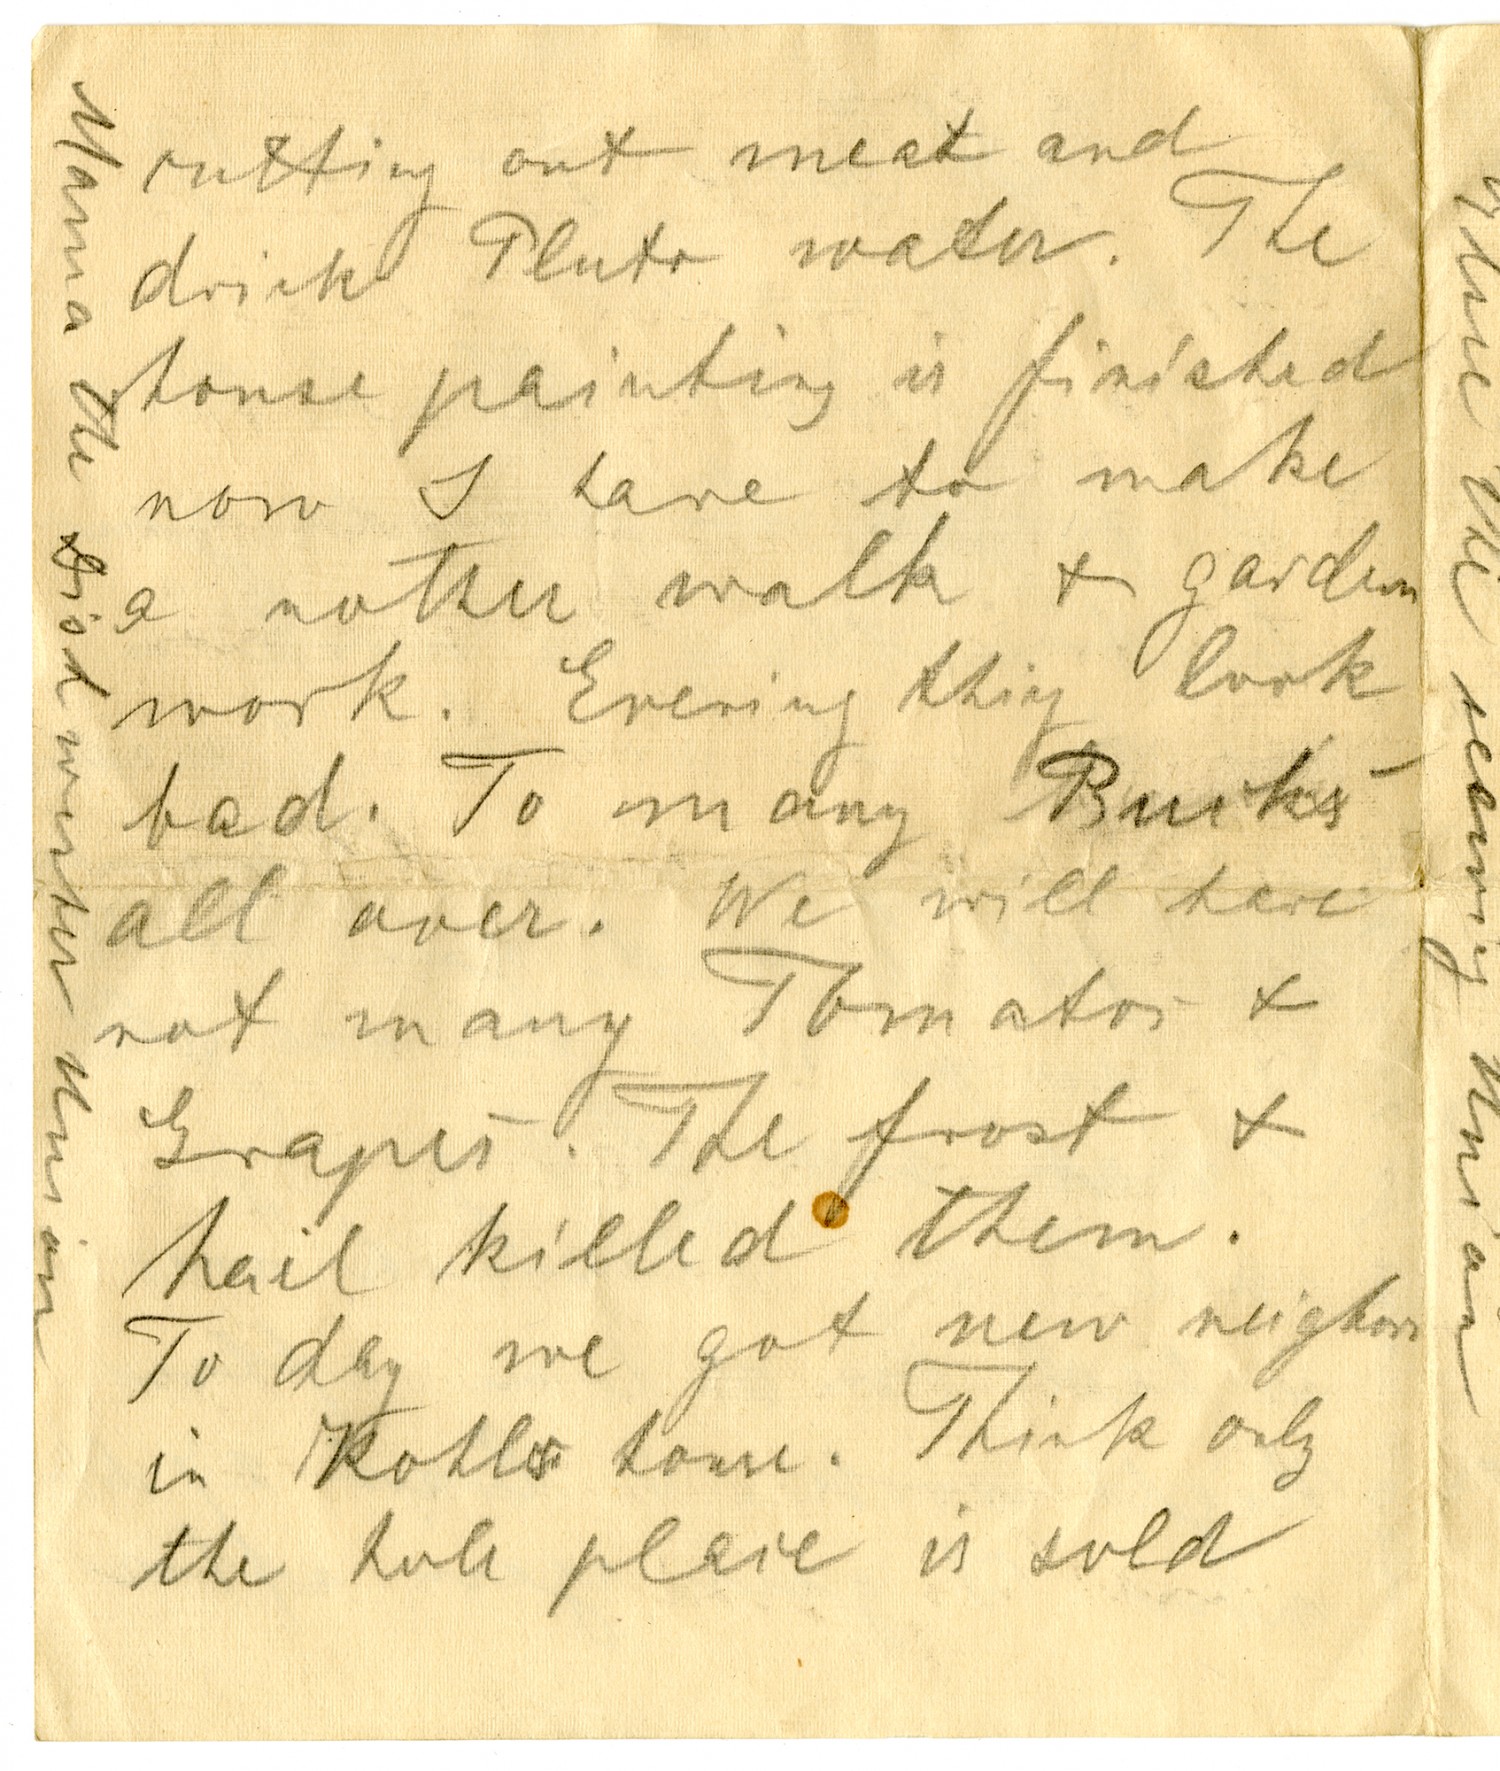 cutting out meat and
drink Pluto water. The
house painting is finished
now I have to make
a nother walk & garden
work. Evering thing look
bad. To many Bucks
all over. We will have
not many Tomatos &
Grapes. The frost &
hail killed them.
To day we got new neighbors
in Kohler house. Think only
the hole place is sold
Mama the